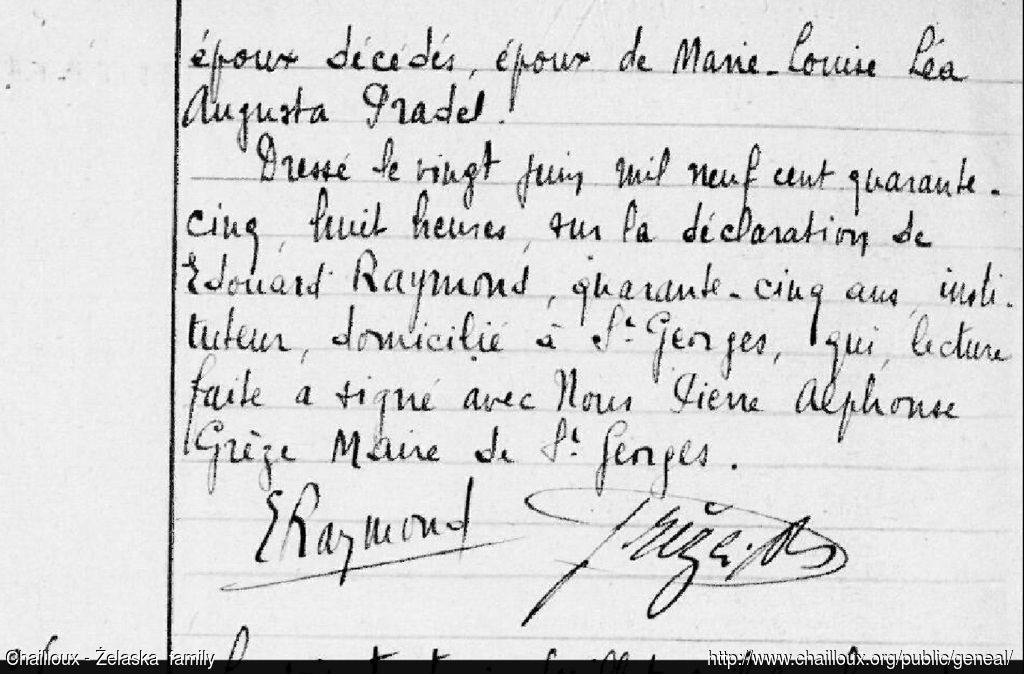 époux décédés, époux de Marie-Louise Léa
Augusta Pradel.
Dressé le vingt juin mil neuf cent quarante-
cinq, huit heures, sur la déclaration de
Edouard Raymond, quarante-cinq ans, insti-
tuteur, domicilié à St Georges, qui, lecture
faite a signé avec Nous Pierre Alphonse
Grèze Maire de St Georges.
ERaymond
Grèze
Chailloux - Żelaska family
http://www.chailloux.org/public/geneal/